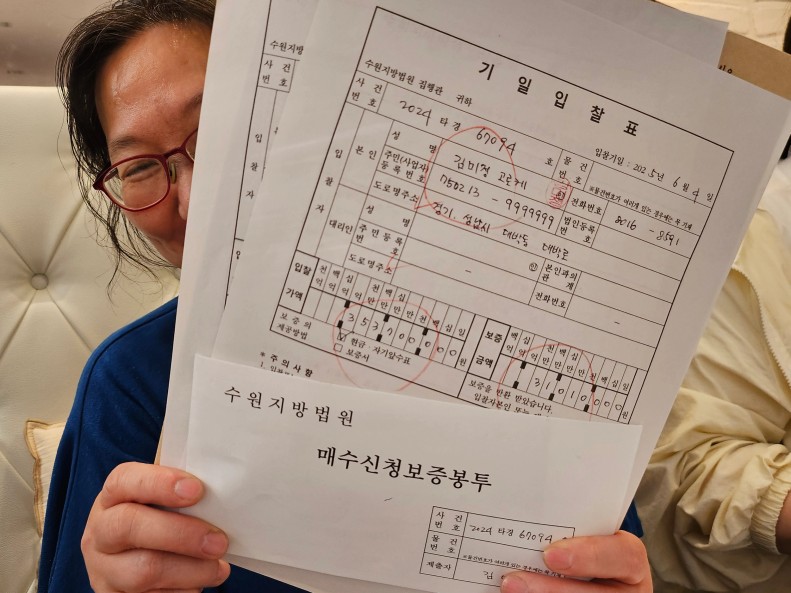 기일입찰표
수원지방법원 집행관 귀하
입찰기일 : 2025년 6월 4일
사건번호 2024 타경 67094 호 물건번호
※물건번호가 여러개 있는 경우에는 꼭 기재
입찰자
본인
성명 김미정
전화번호 8016 - 8591
주민(사업자)등록번호 750213 - 9999999
법인등록번호
도로명주소 경기. 성남시
대리인
성명
본인과의 관계
주민등록번호 -
전화번호 -
도로명주소
입찰가액 천억 백억 십억 억 천만 백만 십만 만 천 백 십 일
353700000원
보증금액 백억 십억 억 천만 백만 십만 만 천 백 십 일
31010000원
보증의 제공방법
현금·자기앞수표
보증서
보증을 반환 받았습니다.
입찰자 본인 또는
* 주의사항
수원지방법원
매수신청보증봉투
사건번호 2024 타경 67094
물건번호
※물건번호가 여러개 있는 경우에는 꼭 기재
제출자 김
수원지방
사건번호
입찰자